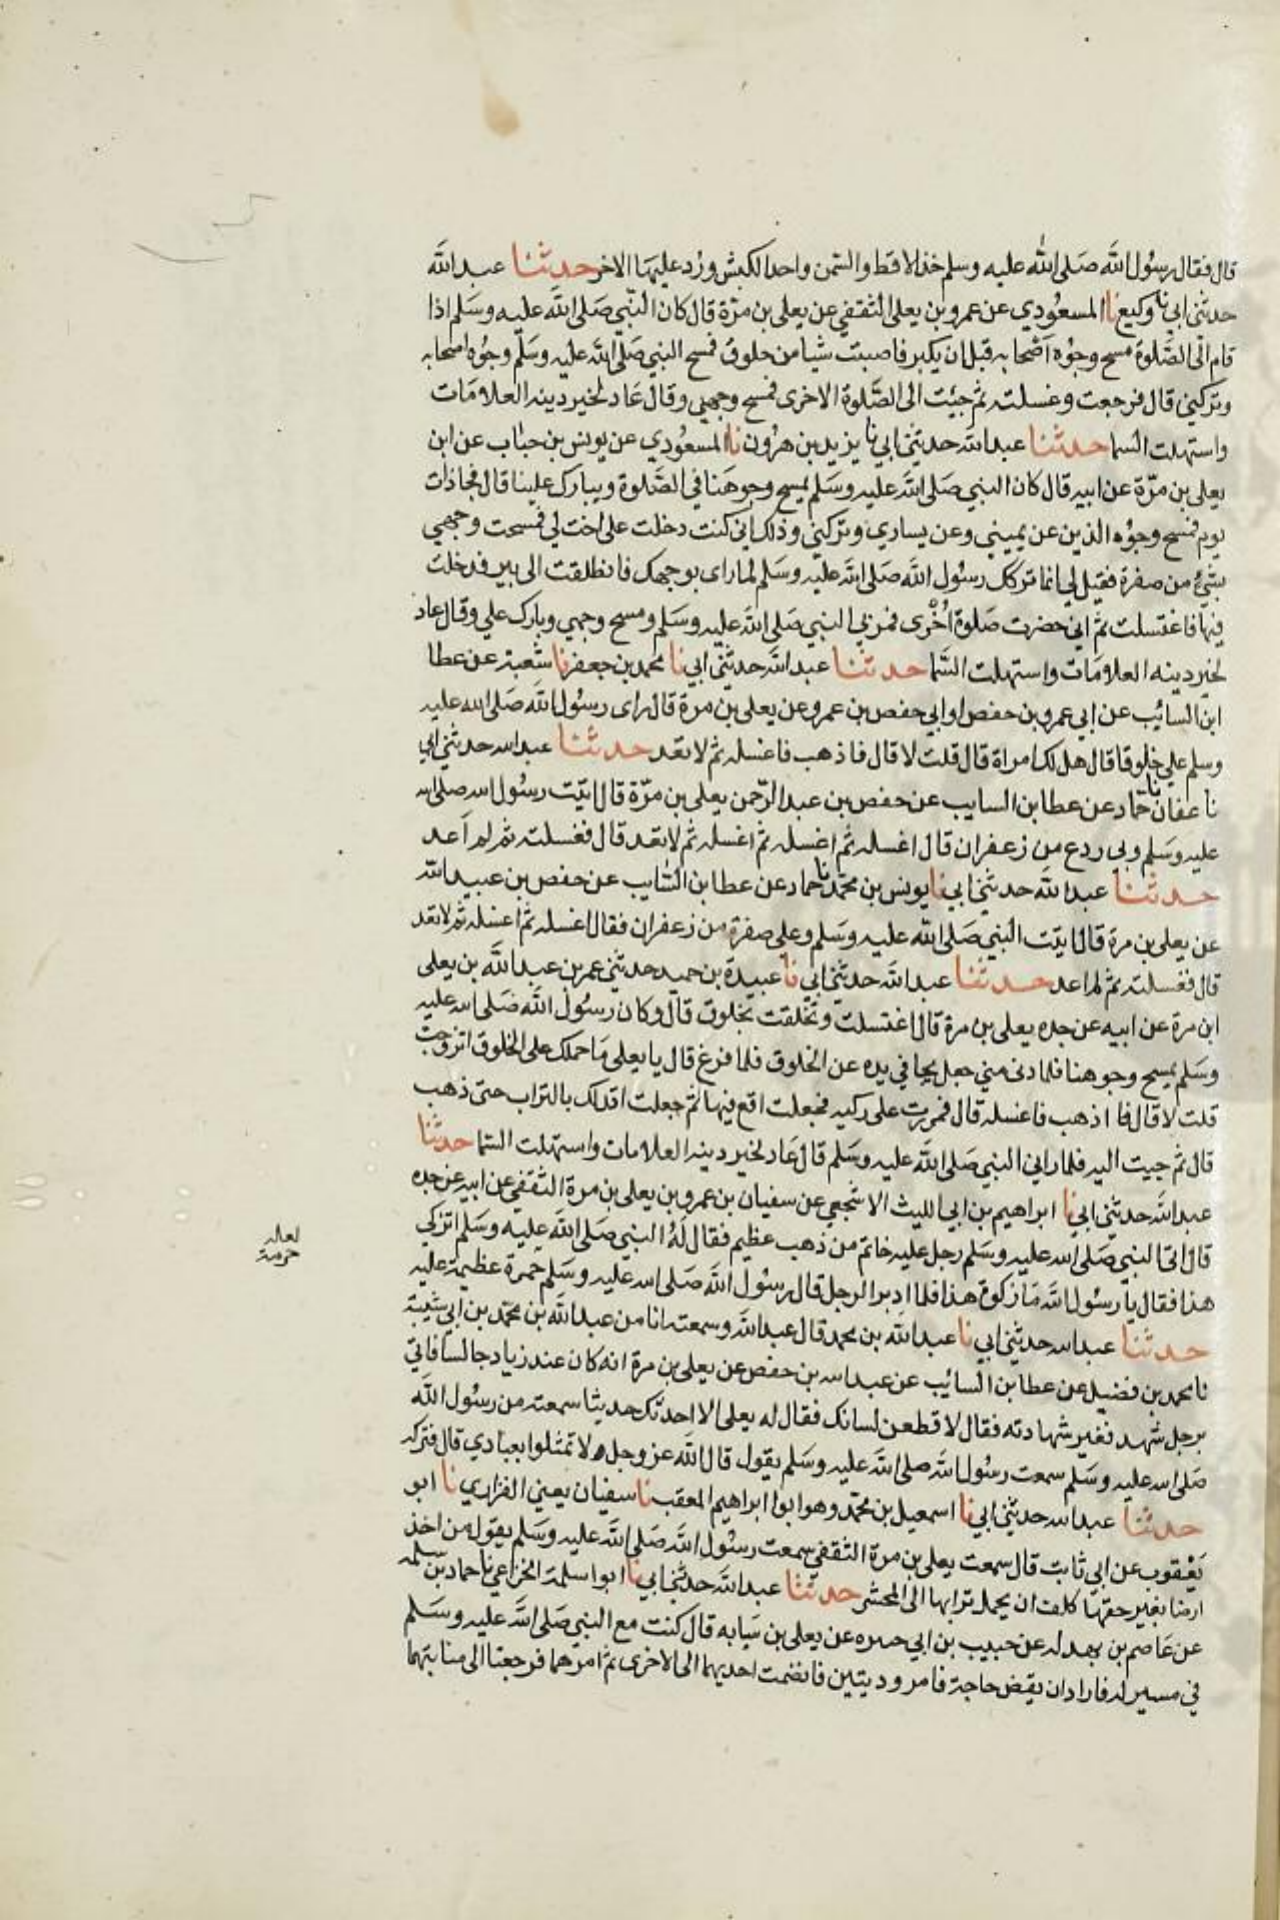 قال فقال رسول الله صلى الله عليه وسلم خذ الاقط والسمن واحد الكبش ورد عليها الاخر حدثنا عبد الله
حدثني ابي نا وكيع نا المسعودي عن عمرو بن يعلى الثقفي عن يعلى بن مرة قال كان النبي صلى الله عليه وسلم اذا
قام الى الصلوة مسح وجوه اصحابه قبل ان يكبر فاصبت شيا من خلوق فمسح النبي صلى الله عليه وسلم وجوه اصحابه
وتركني قال فرجعت وغسلته ثم جئت الى الصلوة الاخرى فمسح وجهي وقال عاد لخير دينه العلامات
واستهلت السما حدثنا عبد الله حدثني ابي نا يزيد بن هرون نا المسعودي عن يونس بن خباب عن ابن
يعلى بن مرة عن ابيه قال كان النبي صلى الله عليه وسلم يمسح وجوهنا في الصلوة ويبارك علينا قال فجا ذات
يوم فمسح وجوه الذين عن يميني وعن يساري وتركني وذلك اني كنت دخلت على اخت لي فمسحت وجهي
بشيء من صفرة فقيل لي انما تركك رسول الله صلى الله عليه وسلم لما راى بوجهك فانطلقت الى بير فدخلت
فيها فاغتسلت ثم اني حضرت صلوة اخرى فمر بي النبي صلى الله عليه وسلم ومسح وجهي وبارك علي وقال عاد
لخير دينه العلامات واستهلت السما حدثنا عبد الله حدثني ابي نا محمد بن جعفر نا شعبة عن عطا
ابن السائب عن ابي عمرو بن حفص او ابي حفص بن عمرو عن يعلى بن مرة قال راى رسول الله صلى الله عليه
وسلم علي خلوقا قال هل لك امراة قال قلت لا قال فاذهب فاغسله ثم لا تعد حدثنا عبد الله حدثني ابي
نا عفان نا حماد عن عطا بن السايب عن حفص بن عبد الرحمن يعلى بن مرة قال اتيت رسول الله صلى الله
عليه وسلم وبي ردع من زعفران قال اغسله ثم اغسله ثم اغسله ثم لا تعد قال فغسلته ثم لم اعد
حدثنا عبد الله حدثني ابي نا يونس بن محمد نا حماد عن عطا بن السايب عن حفص بن عبيد الله
عن يعلى بن مرة قال اتيت النبي صلى الله عليه وسلم وعلي صفرة من زعفران فقال اغسله ثم اغسله ثم لا تعد
قال فغسلته ثم لم اعد حدثنا عبد الله حدثني ابي نا عبيدة بن حميد حدثني عمر بن عبد الله بن يعلى
ابن مرة عن ابيه عن جده يعلى بن مرة قال اغتسلت وتخلقت بخلوق قال وكان رسول الله صلى الله عليه
وسلم يمسح وجوهنا فلما دنى مني جعل يجافي يده عن الخلوق فلما فرغ قال يا يعلى ما حملك على الخلوق اتزوجت
قلت لا قال فا اذهب فاغسله قال فمررت على ركيه فجعلت اقع فيها ثم جعلت اتدلك بالتراب حتى ذهب
قال ثم جيت اليه فلما راني النبي صلى الله عليه وسلم قال عاد لخير دينه العلامات واستهلت السما حدثنا
عبد الله حدثني ابي نا ابراهيم بن ابي الليث الاشجعي عن سفيان بن عمرو بن يعلى بن مرة الثقفي عن ابيه عن جده
قال اتى النبي صلى الله عليه وسلم رجل عليه خاتم من ذهب عظيم فقال له النبي صلى الله عليه وسلم اتزكي
هذا فقال يا رسول الله ما زكوة هذا فلما ادبر الرجل قال رسول الله صلى الله عليه وسلم جمرة عظيمة عليه
حدثنا عبد الله حدثني ابي نا عبد الله بن محمد قال عبد الله وسمعته انا من عبد الله بن محمد بن ابي شيبة
نا محمد بن فضيل عن عطا بن السائب عن عبد الله بن حفص عن يعلى بن مرة انه كان عند زياد جالسا فاتي
برجل شهد فغير شهادته فقال لاقطعن لسانك فقال له يعلى الا احدثك حديثا سمعته من رسول الله
صلى الله عليه وسلم سمعت رسول الله صلى الله عليه وسلم يقول قال الله عز وجل لا تمثلوا بعبادي قال فتركه
حدثنا عبد الله حدثني ابي نا اسمعيل بن محمد وهو ابو ابراهيم المعقب نا سفيان يعني الفزاري نا ابو
يعقوب عن ابي ثابت قال سمعت يعلى بن مرة الثقفي سمعت رسول الله صلى الله عليه وسلم يقول من اخذ
ارضا بغير حقها كلف ان يحمل ترابها الى المحشر حدثنا عبد الله حدثني ابي نا ابو اسلمة الخزاعي نا حماد بن سلمه
عن عاصم بن بهدله عن حبيب بن ابي جبيره عن يعلى بن سيابه قال كنت مع النبي صلى الله عليه وسلم
في مسير له فاراد ان يقض حاجة فامر وديتين فانضمت احديهما الى الاخرى ثم امرهما فرجعتا الى منابتهما